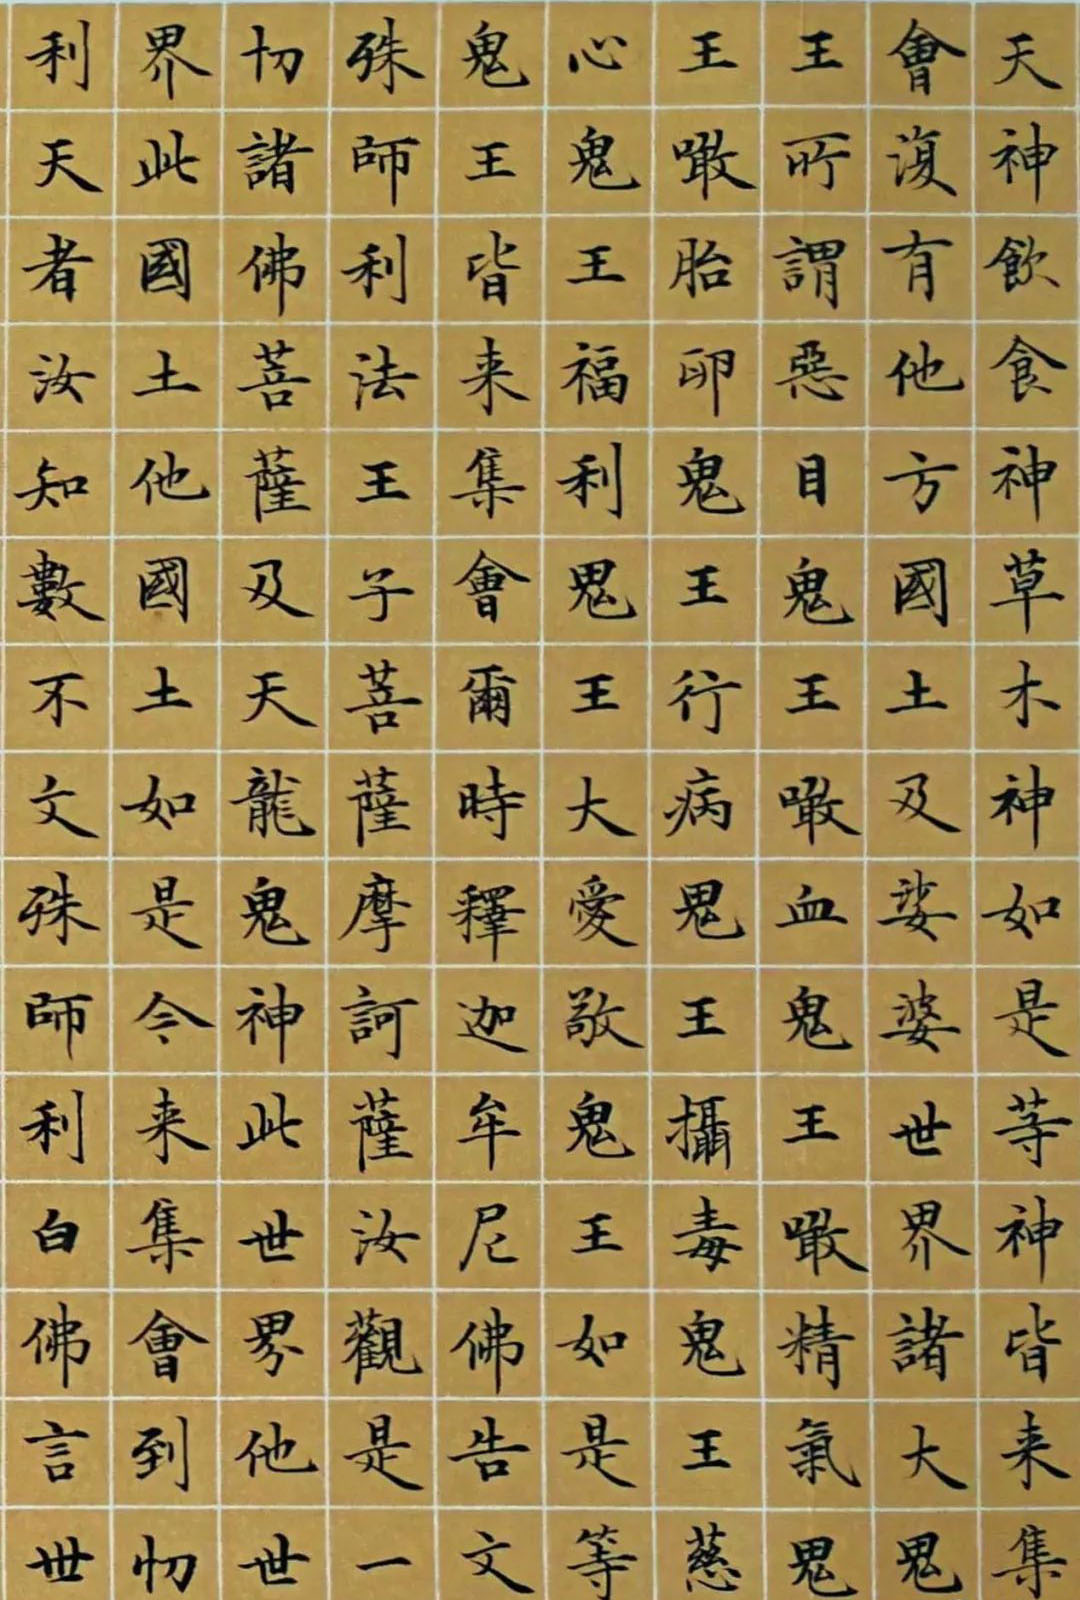 天神飲食神草木神如是等神皆来集
會復有他方國土及娑婆世界諸大鬼
王所謂惡目鬼王噉血鬼王噉精氣鬼
王噉胎卵鬼王行病鬼王攝毒鬼王慈
心鬼王福利鬼王大愛敬鬼王如是等
鬼王皆来集會爾時釋迦牟尼佛告文
殊師利法王子菩薩摩訶薩汝觀是一
切諸佛菩薩及天龍鬼神此世界他世
界此國土他國土如是今来集會到忉
利天者汝知數不文殊師利白佛言世